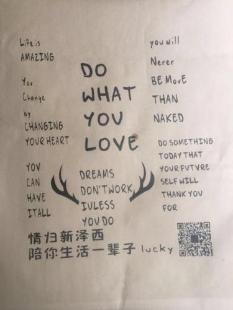 Life is
AMAZING
You
Change
by
CHANGING
YOUR HEART
YOU
CAN
HAVE
IT ALL
DO
WHAT
YOU
LOVE
DREAMS
DON'T WORK,
IULESS
YOU DO
you will
Never
BE MorE
THAN
NAKED
DO SOMETHING
TODAY THAT
YOUR FUTVRE
SELF WILL
THANK YOU
FOR
情归新泽西
陪你生活一辈子 lucky